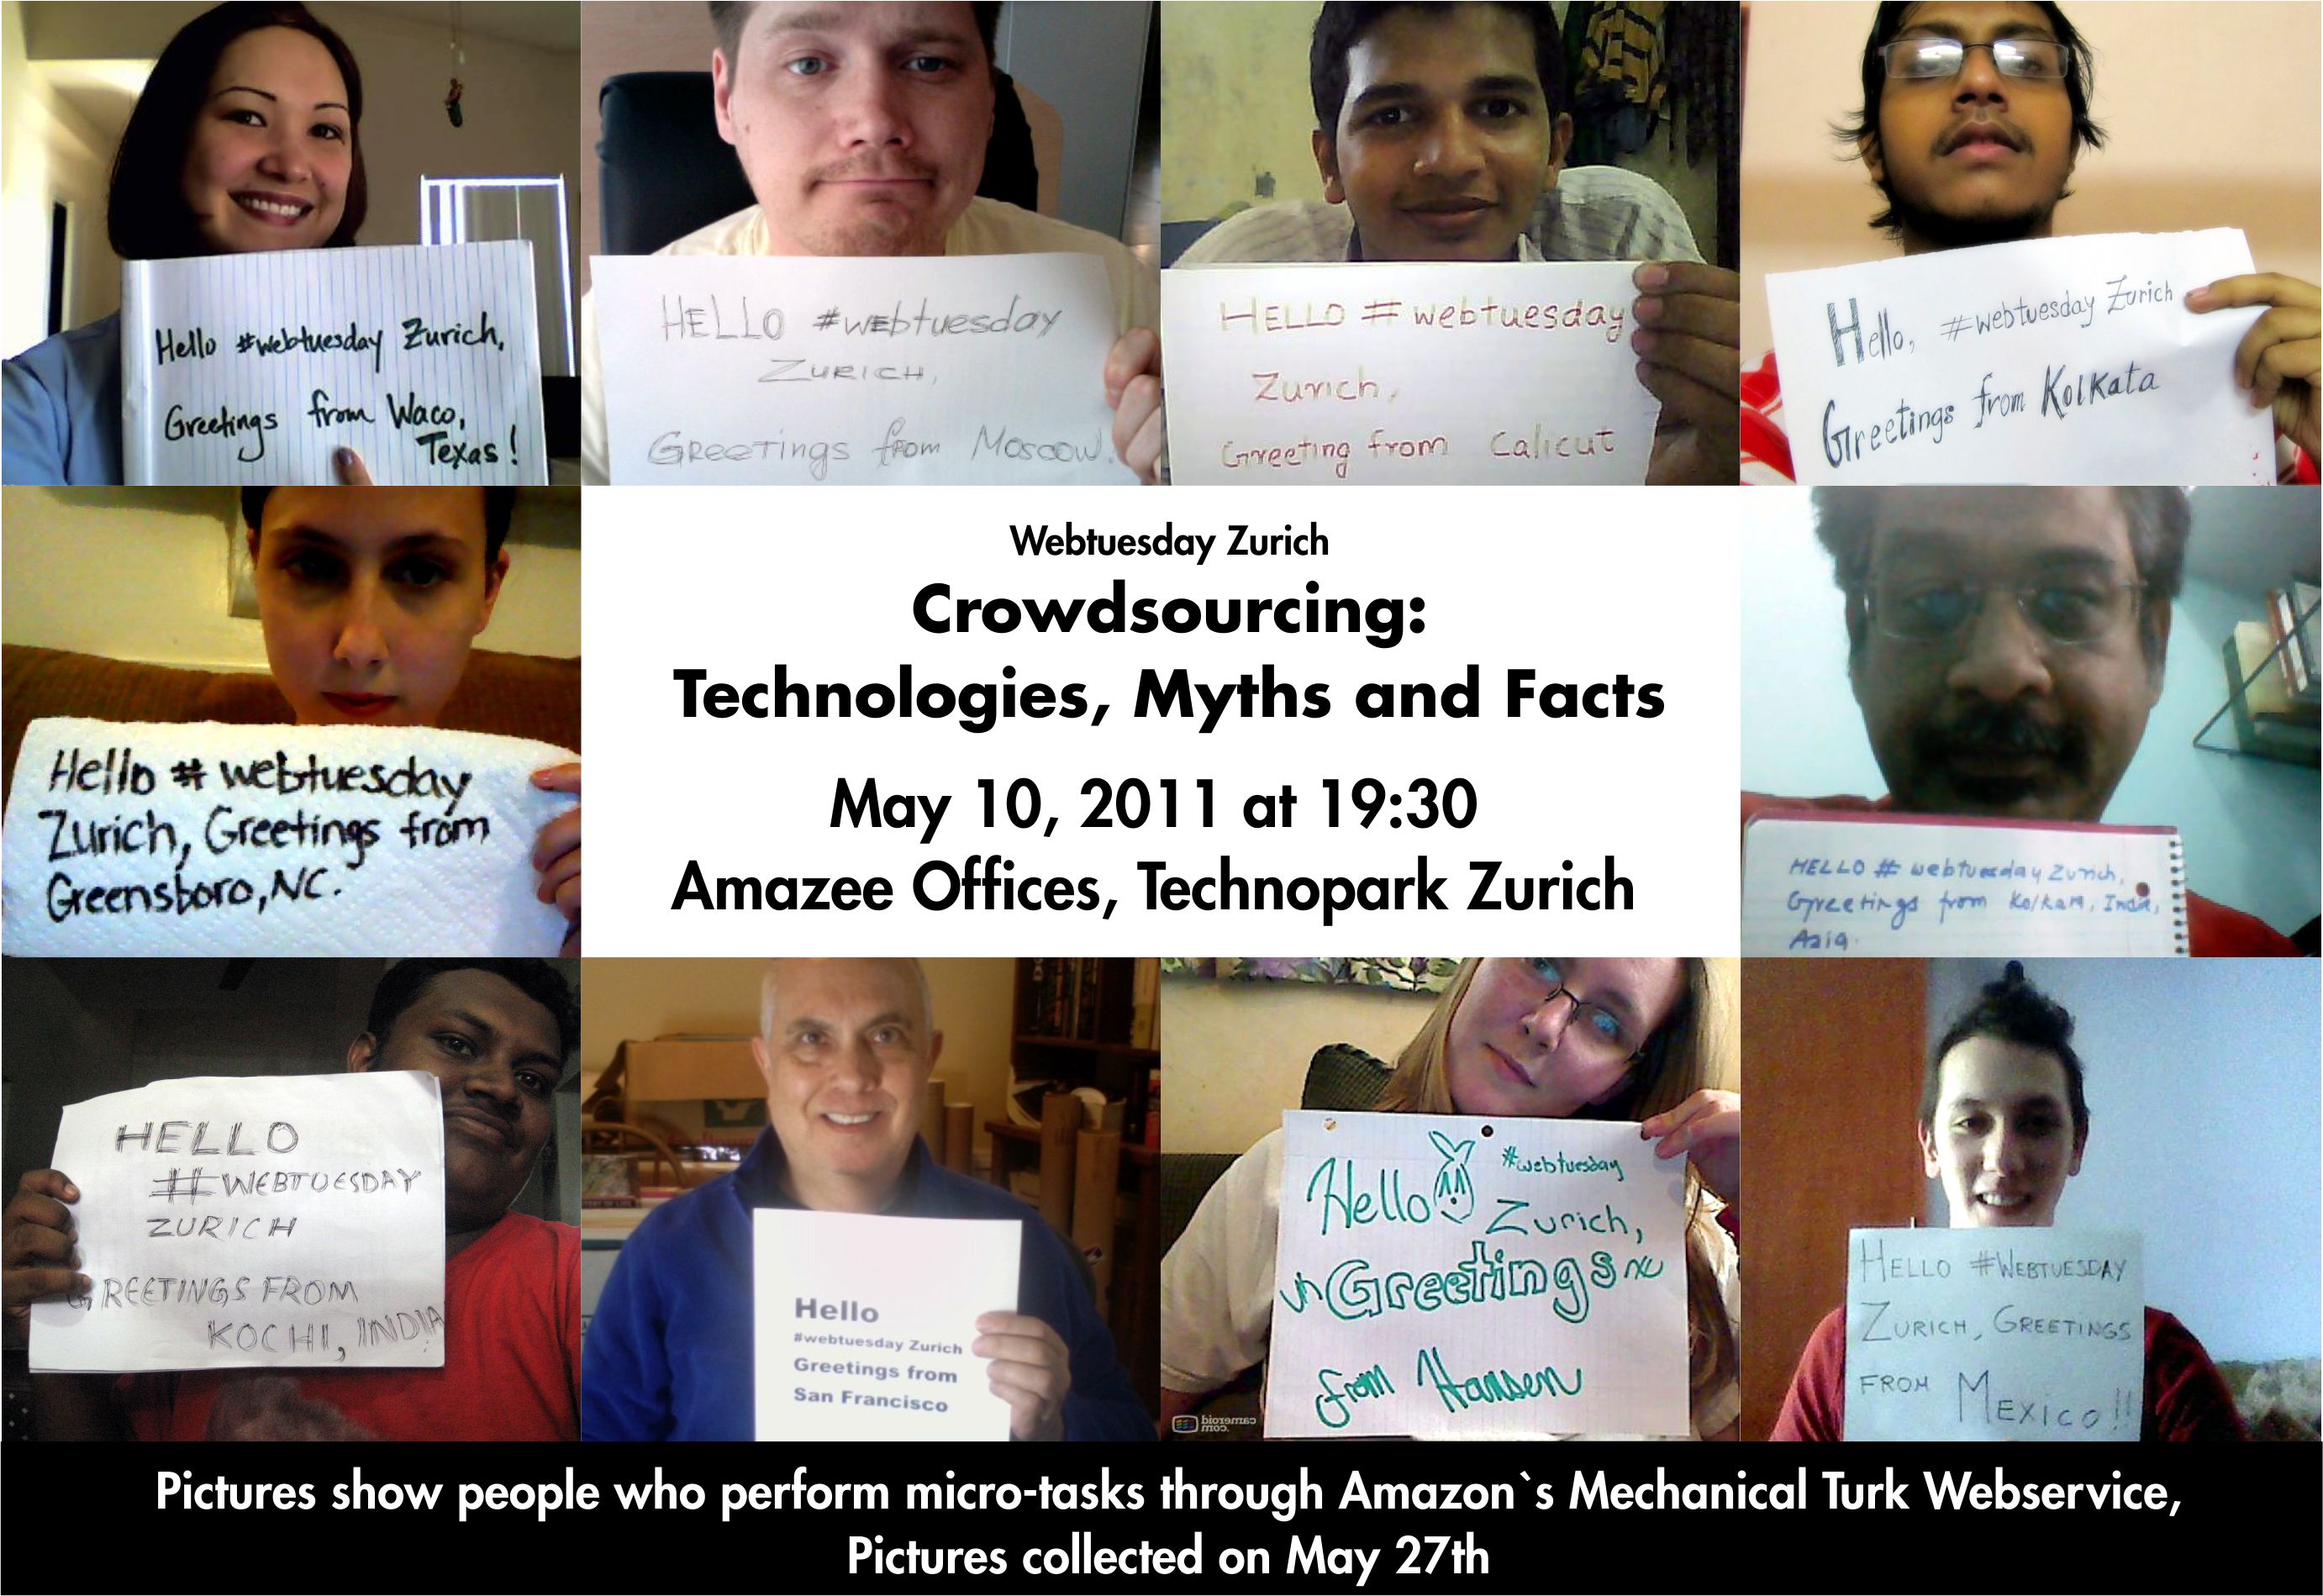 Hello #webtuesday Zurich,
Greetings from Waco,
Texas!
HELLO #webtuesday
ZURICH,
GREETINGS from Moscow.
HELLO # webtuesday
Zurich,
Greeting from Calicut
Hello, #webtuesday Zurich
Greetings from Kolkata
Hello # webtuesday
Zurich, Greetings from
Greensboro, NC.
Webtuesday Zurich
Crowdsourcing:
Technologies, Myths and Facts
May 10, 2011 at 19:30
Amazee Offices, Technopark Zurich
HELLO # webtuesday Zurich,
Greetings from Kolkata, India,
Asia.
HELLO
#WEBTUESDAY
ZURICH
GREETINGS FROM
KOCHI, INDIA
Hello
#webtuesday Zurich
Greetings from
San Francisco
Hello #webtuesday
Zurich,
Greetings
from Hansen
cameroid
.com
HELLO #WEBTUESDAY
ZURICH, GREETINGS
FROM MEXICO!!
Pictures show people who perform micro-tasks through Amazon`s Mechanical Turk Webservice,
Pictures collected on May 27th